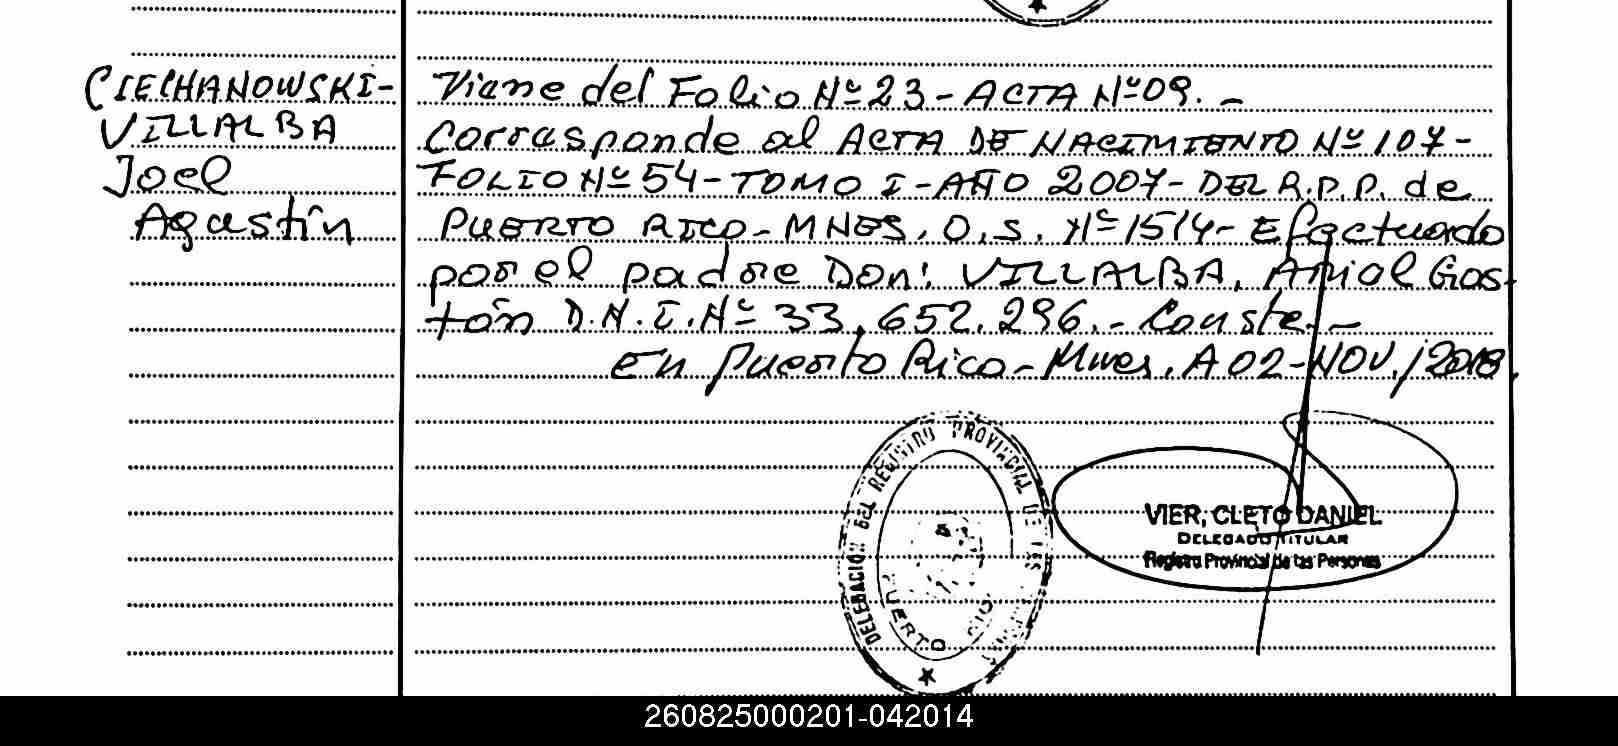 CIECHANOWSKI-
VILLALBA
Joel
Agustín
Viene del Folio Nº 23 - ACTA Nº 09. -
Corresponde al ACTA DE NACIMIENTO Nº 107 -
FOLIO Nº 54 - TOMO I - AÑO 2007 - DEL R.P.P. de
PUERTO RICO - MNES. O.S. Nº 1514 - Efectuado
por el padre Don: VILLALBA, Ariel Gas-
tón D.N.I. Nº 33.652.296. - Conste. -
En Puerto Rico - Mnes. A 02 - NOV./2018.
DELEGACION DEL REGISTRO PROVINCIAL DE LAS
PUERTO RICO
VIER, CLETO DANIEL
DELEGADO TITULAR
Registro Provincial de las Personas
260825000201-042014